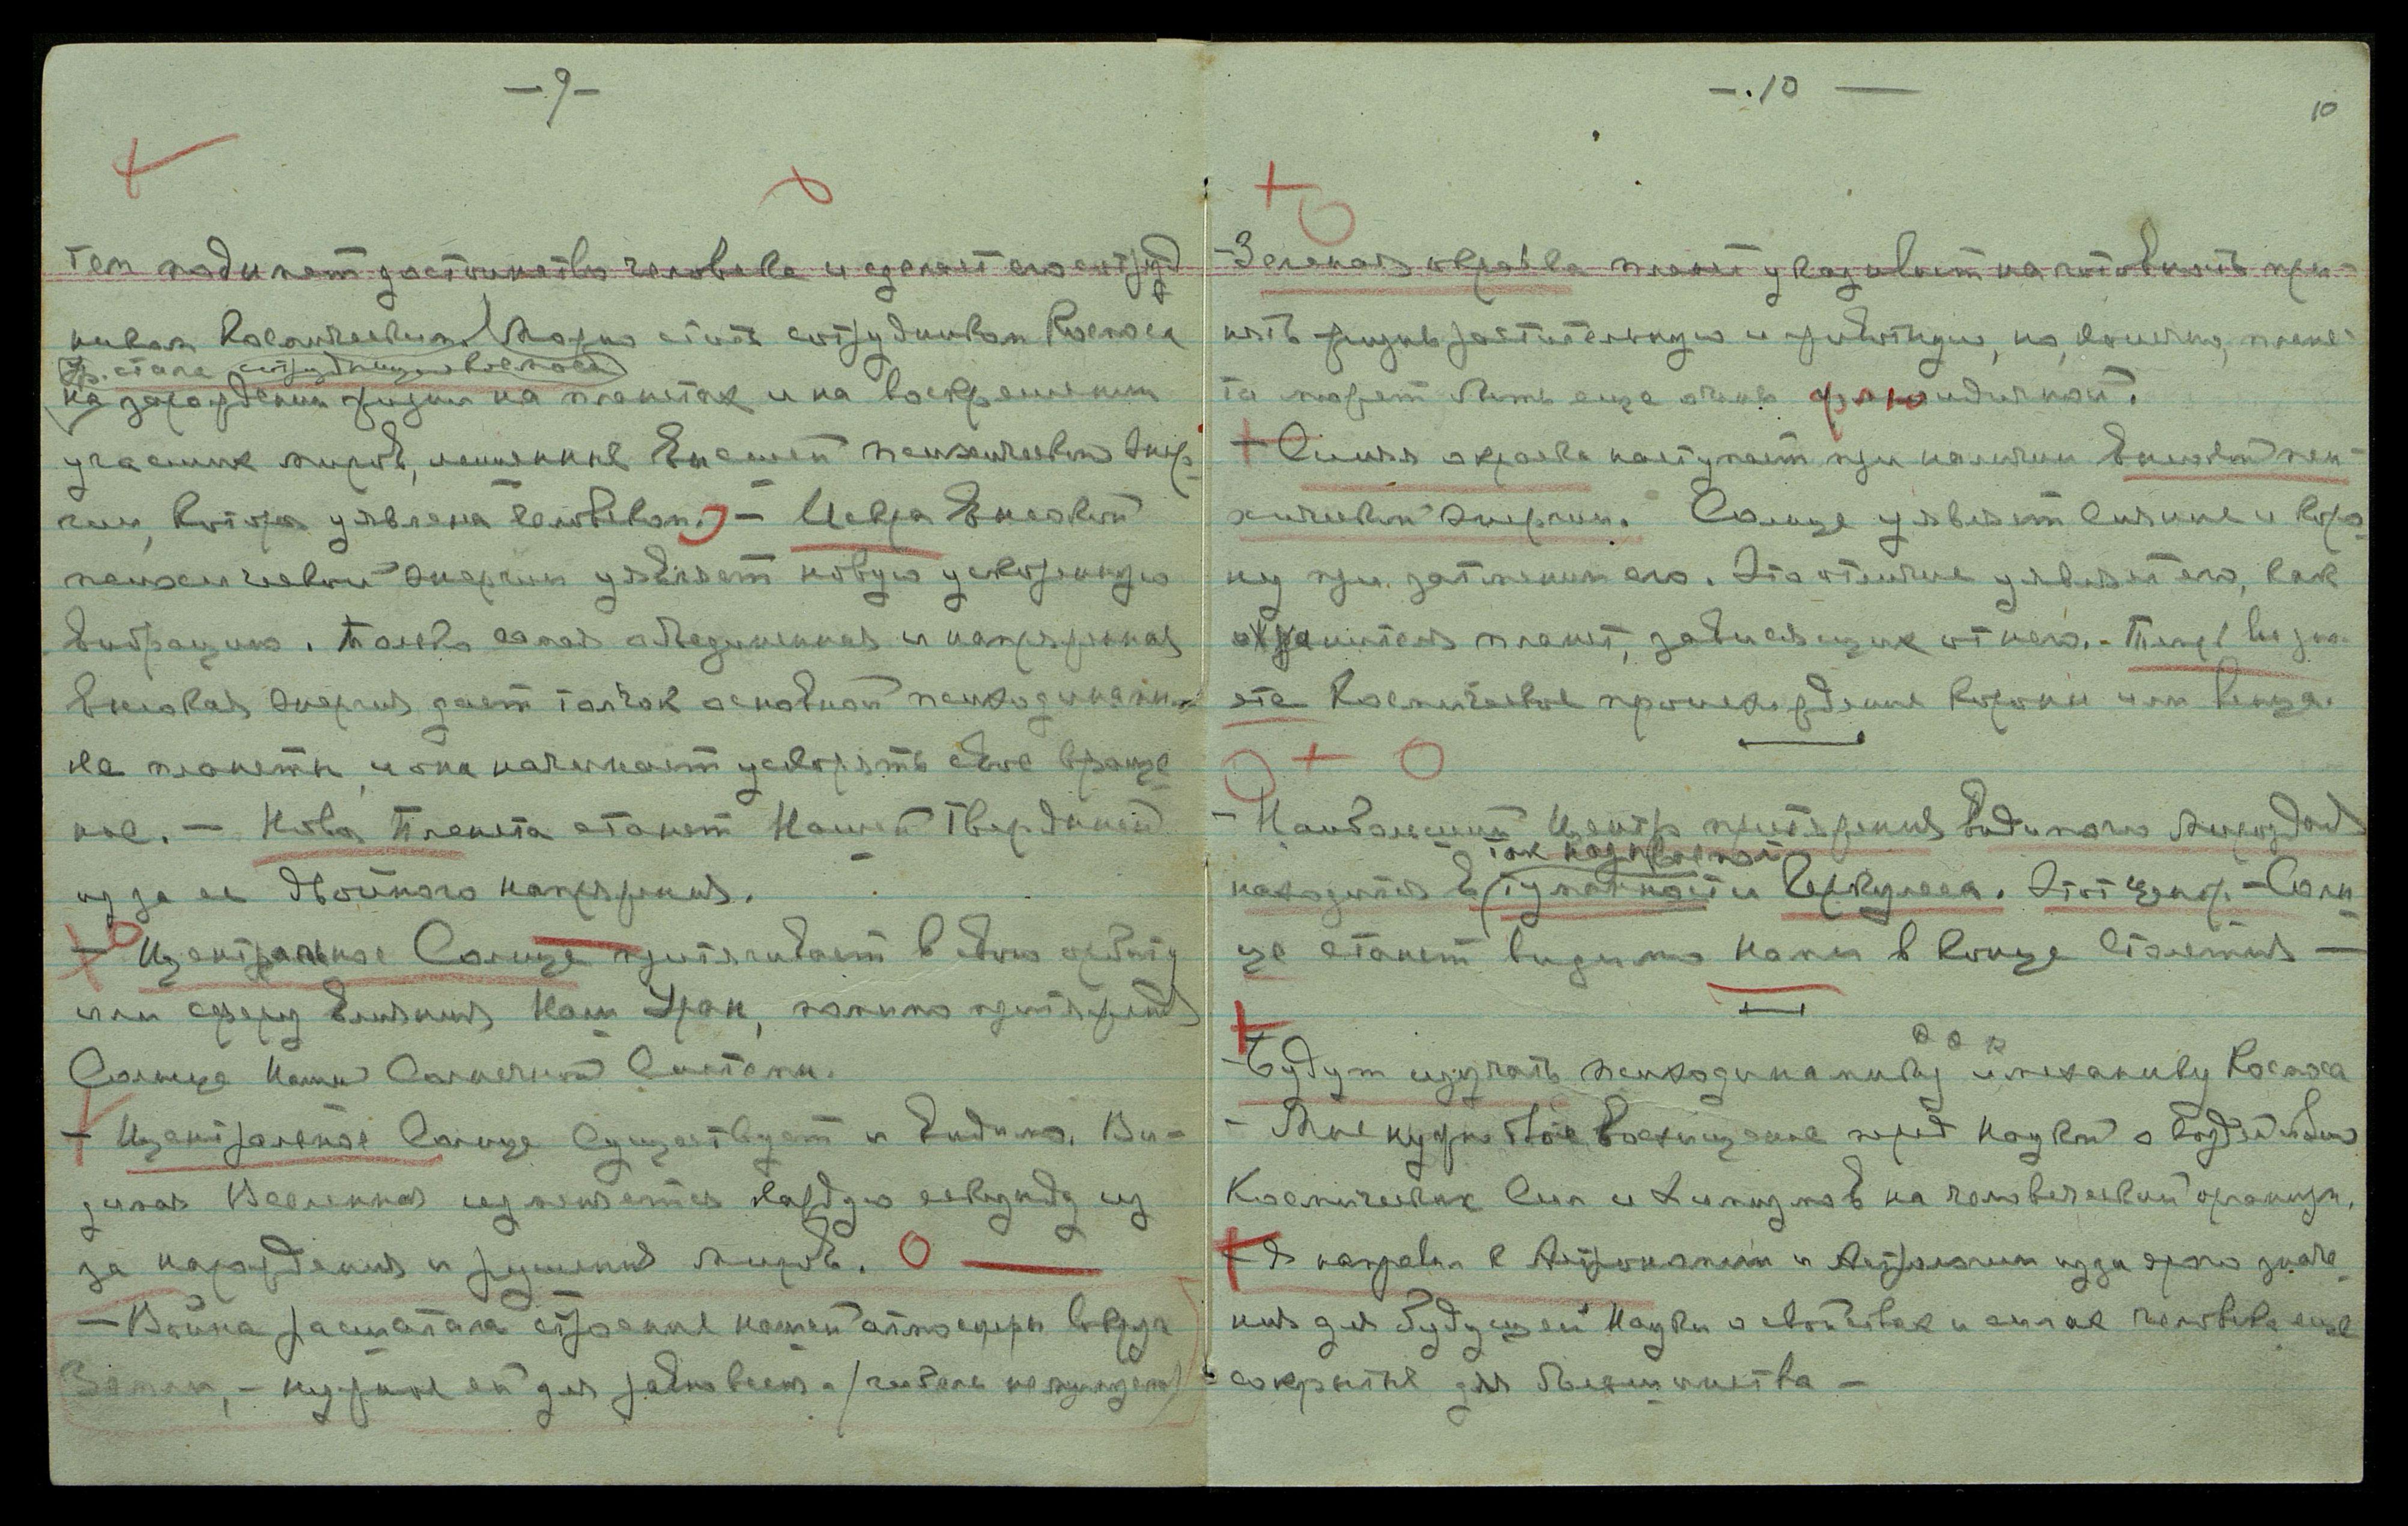 — 9 —
тем поднимет достоинство человека и сделает его сотруд
ником Космическим. Можно стать сотрудником Космоса
Ур. стала сотрудницею Космоса
на зарождении жизни на планетах и на воскрешении
угасших миров, лишенных Высшей психической энер
гии, которая уявлена человеком. — Искра Высокой
психической энергии уявляет новую ускоренную
вибрацию. Только самая объединенная и напряженная
высокая энергия дает толчок основной психодинами-
ке планеты, и она начинает ускорять свое враще
ние. — Новая Планета станет Нашей Твердыней
из за ее двойного напряжения.
— Центральное Солнце притягивает в свою орбиту
или сферу влияния Наш Уран, помимо притяжения
Солнца Нашей Солнечной Системы.
— Центральное Солнце существует и видимо. Ви-
димая Вселенная изменяется каждую секунду из
за нарождения и рушения миров.
— Война расшатала строение нашей атмосферы вокруг
Земли, — нужные ей для равновесия.

— 10 —
10
— Зеленая окраска планет указывает на готовность при-
нять жизнь растительную и животную, но, конечно, плане
та может быть еще очень флюидичной.
— Синяя окраска наступает при наличии Высокой пси-
хической энергии. Солнце уявляет сияние и коро
ну при затмении его. Это отличие уявляет его, как
хранителя планет, зависящих от него. -
эта Космическое происхождение короны или венца.
— Наибольший Центр притяжения видимого мироздания
так называемой
находится в туманности Геркулеса. Этот центр — Солн
це станет видимо Нами в конце столетия —
— Будут изучать психодинамику и механику Космоса
— Мне нужно твое восхищение перед Наукой о воздействии
Космических Сил и Химизмов на человеческий организм.
— Я направил к Астрономии и Астрологии из за ярого значе
ния для будущей Науки о свойствах и силах человека еще
сокрытых для большинства —